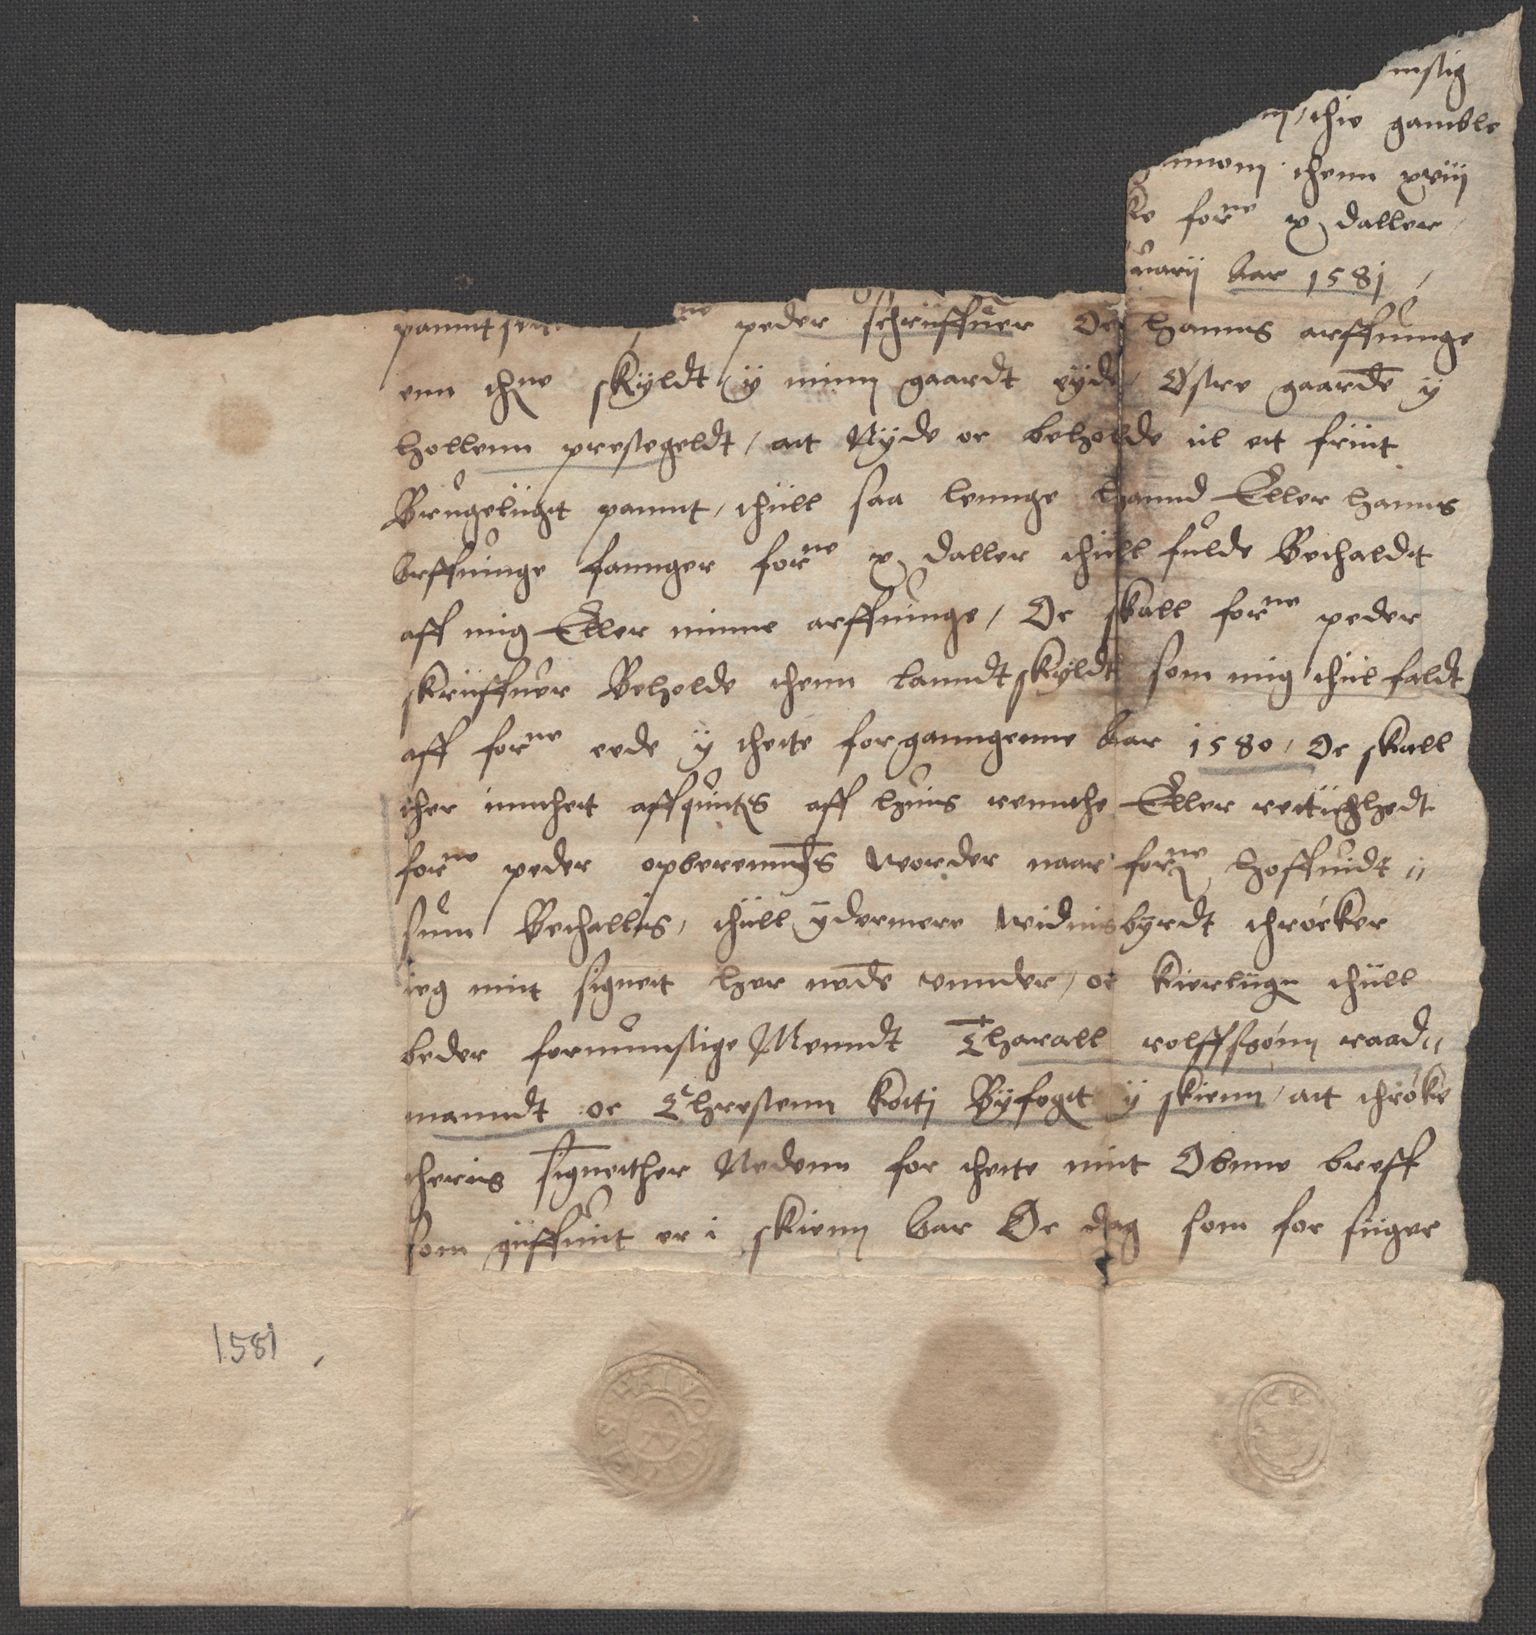 mstig
thie gamble
thenn xviij
ke forne x daller
uarij aar 1581
panntset ne peder schriffuer Oc hanns arffuinge
enn thne skyldt y minn gaardt eyde Østre gaarde y
hollenn prestegeldt / att Nyde oc beholde til ett friit
Brugeligt pannt, thill saa lennge hannd Eller hanns
arffuinge fannger forne x daller thill fulde Bethaldt
aff mig Eller minne arffuinge / Oc skall forne peder
skriffuer Beholde thenn lanndtskyldt som mig thil faldt
aff forne eede y thette forganngenne aar 1580, Oc skall
ther innthet affquittes aff huis rennthe Eller rettighedt
forne peder opberenndes worder naar forne hoffuidt
sum Bethallis, thill ydermere widnisbyrdt thrøcker
ieg mit signett her nede vnnder / oc kierlige thill
beder fornumstige Menndt Tharall rolffssønn raad
manndt oc Chrestenn kortj Byfogit y skienn, att thrøke
theris signetther Nedenn for thette mit Obnne breff
som giffuit er i skienn aar Oc dag som for siiger
1581